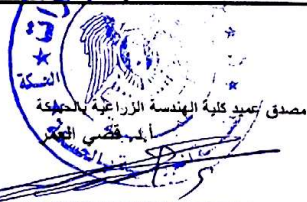 الحسكة
مصدق عميد كلية الهندسة الزراعية بالحسكة
أ.د. قصي العمر